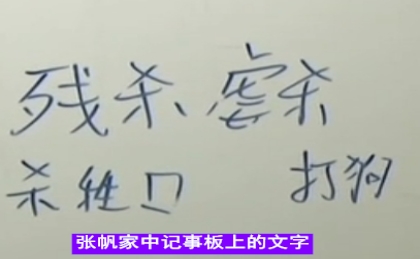 残杀 虐杀
杀牲口 打狗
张帆家中记事板上的文字